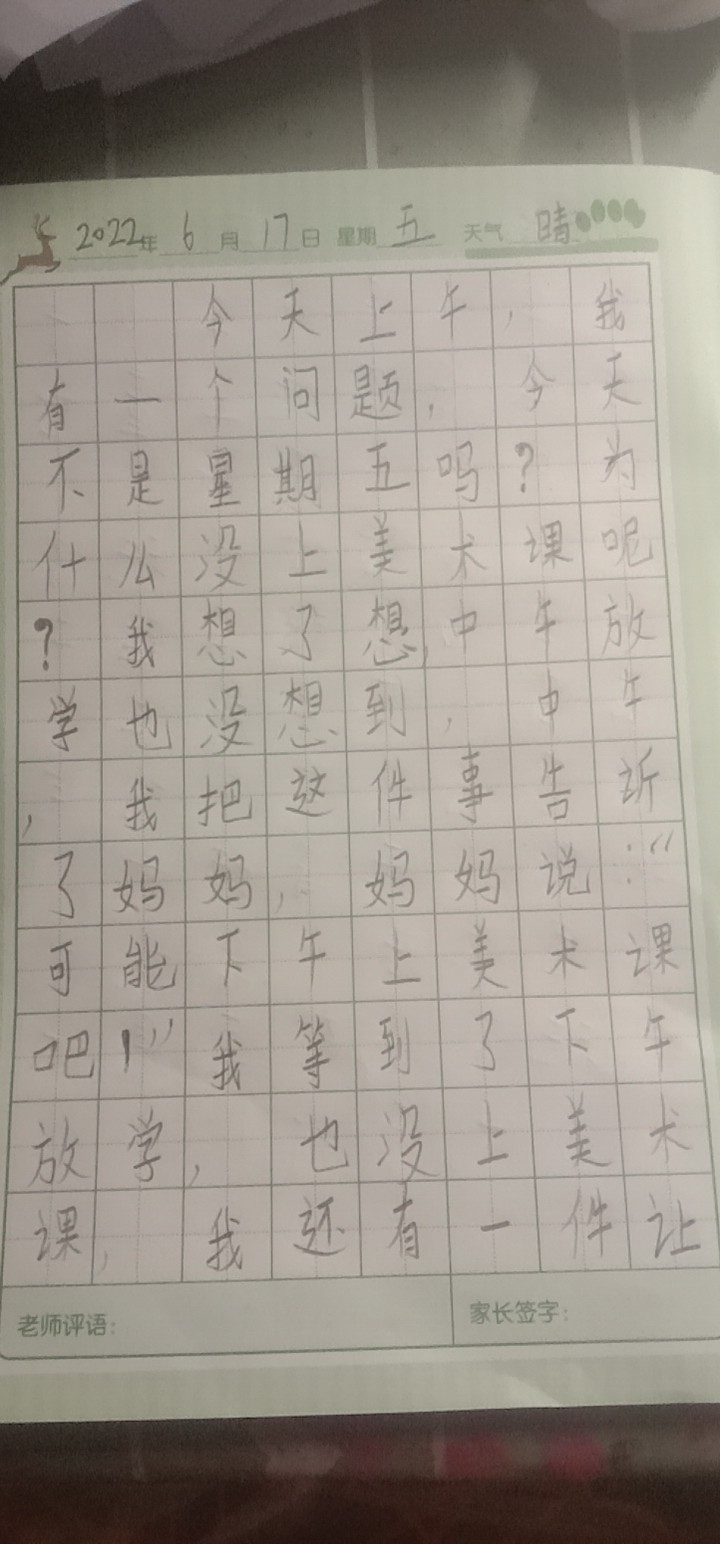 2022年 6月 17日 星期 五 天气 晴
今天上午，我
有一个问题，今天
不是星期五吗？为
什么没上美术课呢
？我想了想，中午放
学也没想到，中午
，我把这件事告诉
了妈妈，妈妈说：“
可能下午上美术课
吧！”我等到了下午
放学，也没上美术
课，我还有一件让
老师评语： 家长签字：